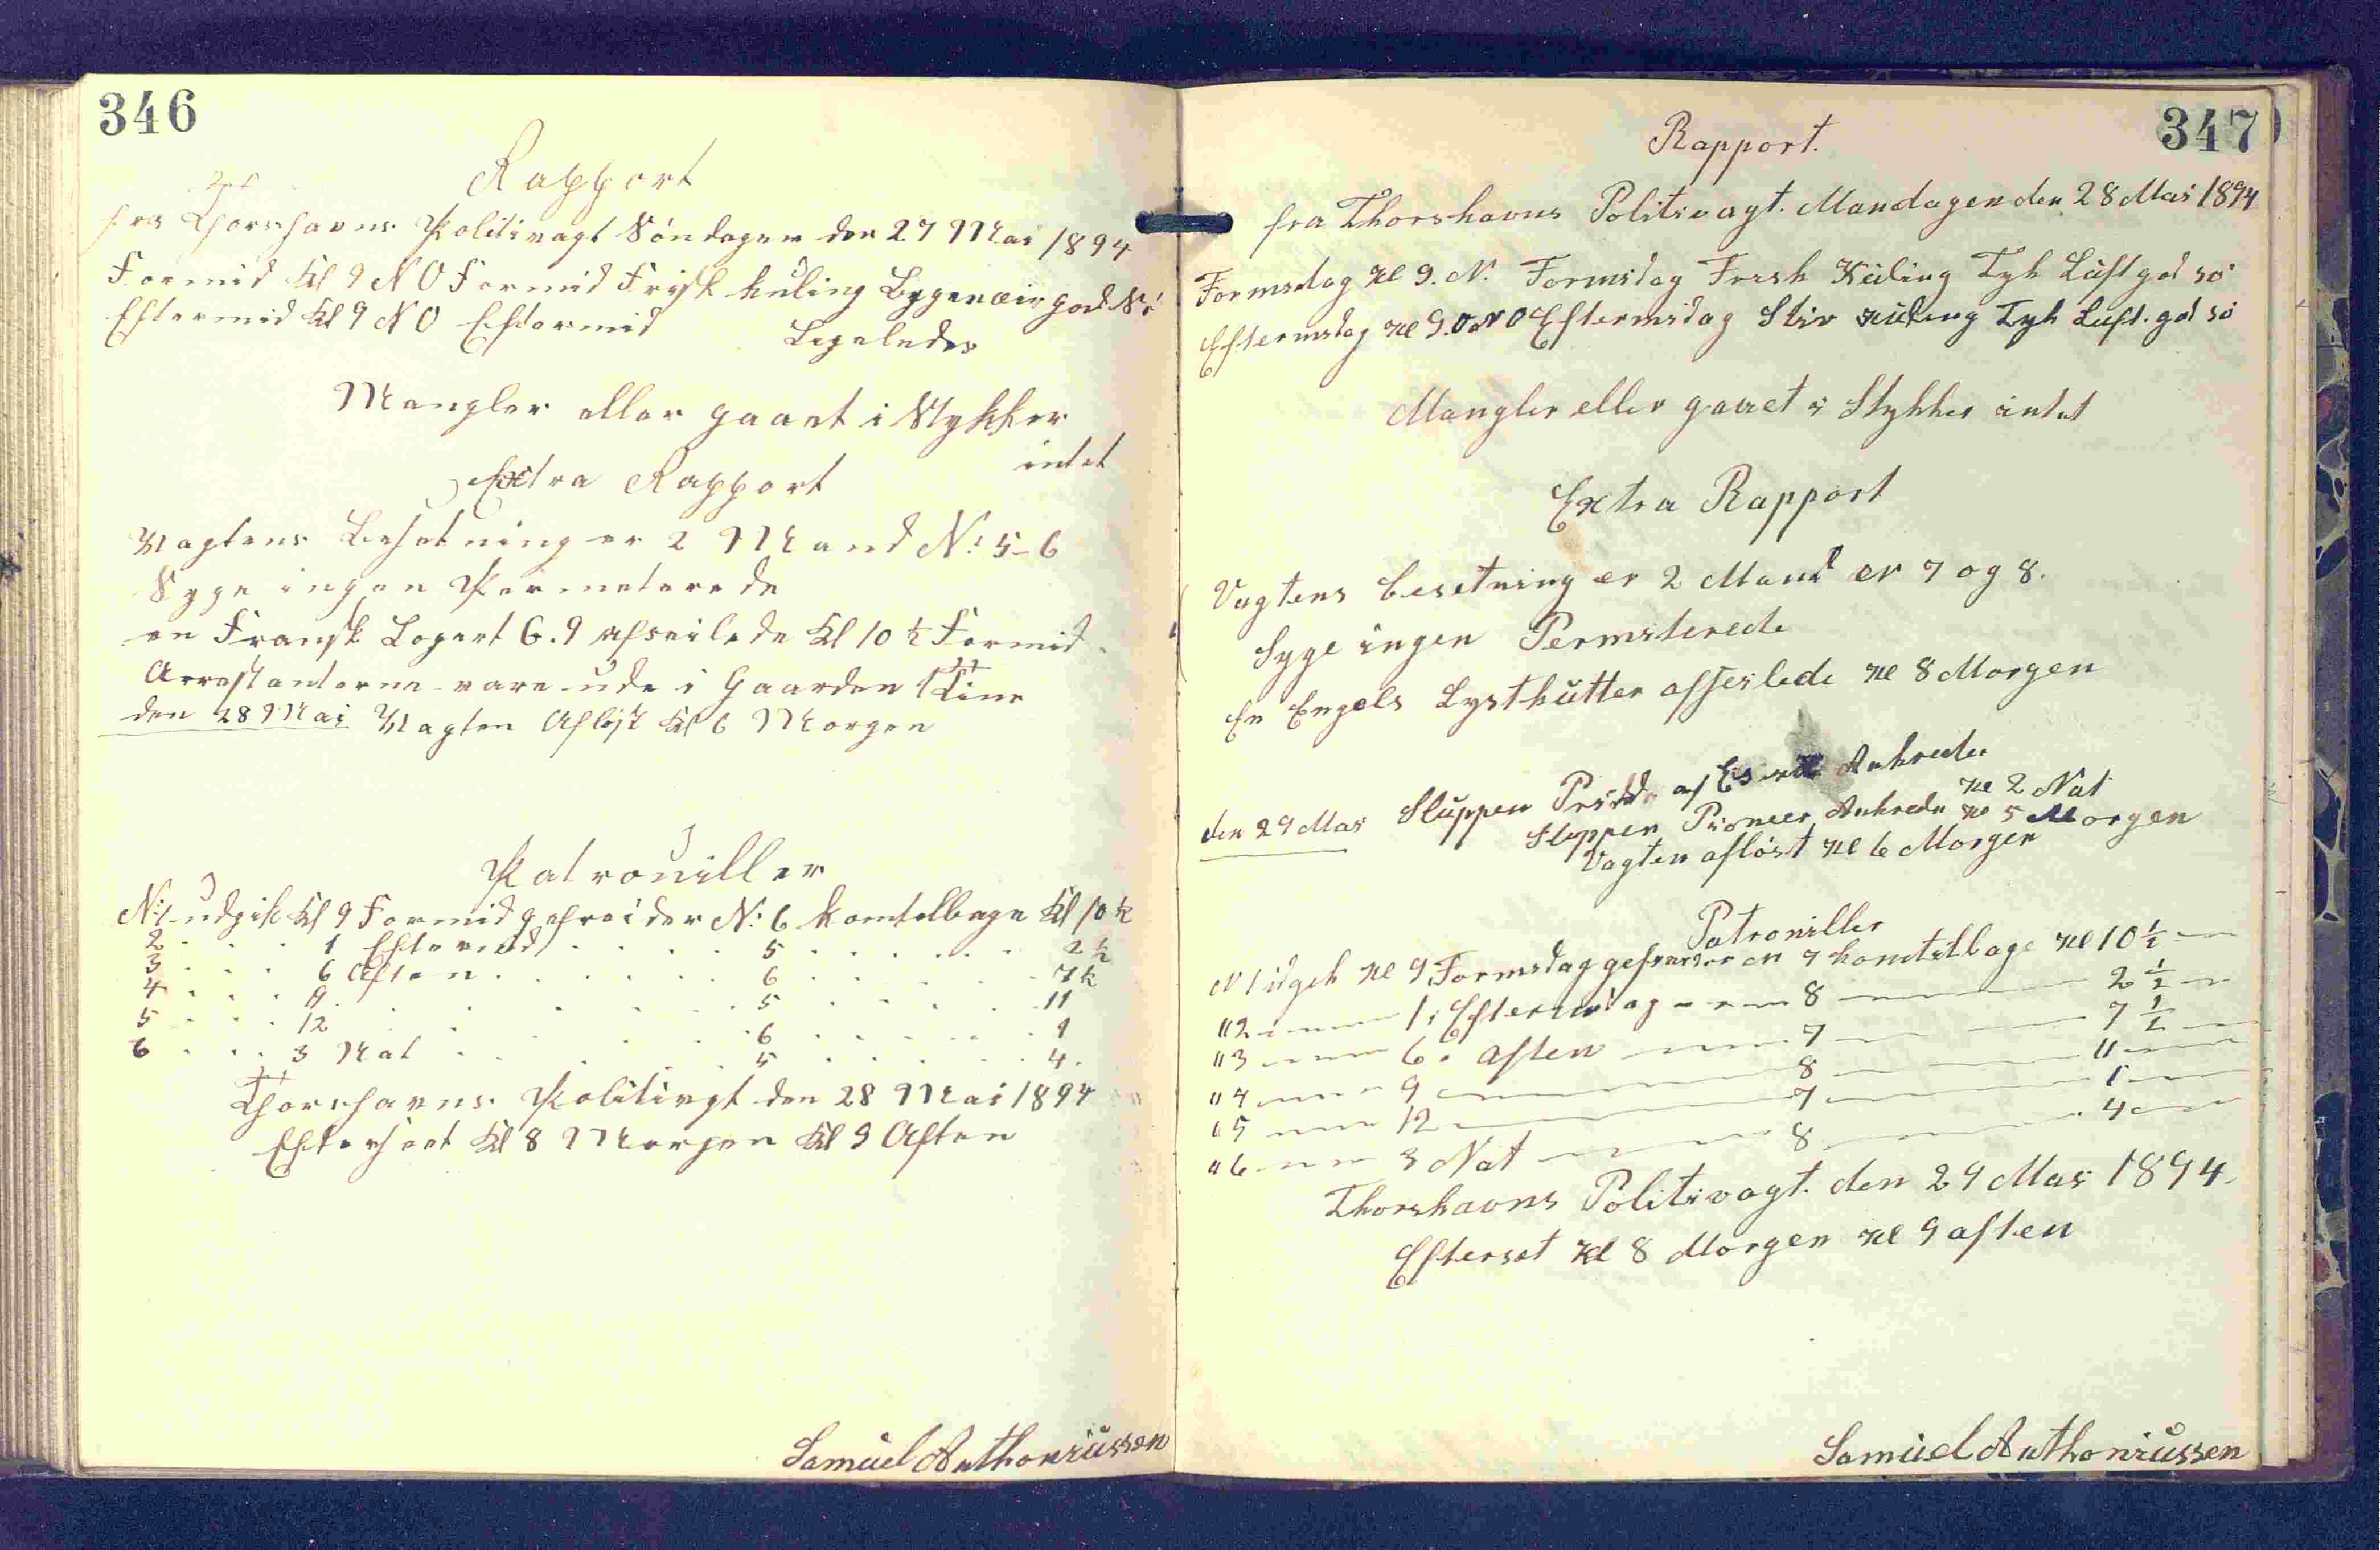 346
Rapport
fra Thorshavns Politivagt Söndagen den 27 Mai 1894
Formid Kl 9 NO Formid Frisk kuling Bygeveir god Sö
Eftermid Kl 9 NO Eftermid Ligeledes
Mangler eller gaaet i Stykker
intet
Extra Rapport
Vagtens Besetning er 2 Mand N: 5-6
Syge ingen Permeterede
en Fransk Logert G.9 afseilede Kl 10 ½ Formid.
Arrestanterne vare ude i Gaarden 1 Time
den 28 Mai Vagten Aflöst Kl 6 Morgen
Patrouiller
N: 1 udgik Kl 9 Formid gefreider N: 6 kom telbage Kl 10 ½
2 . . . 1 Eftermid . . . . 5 . . . . . . 2 ½
3 . . . 6 Aften . . . . . 6 . . . . . 7 ½
4 . . . 9 . . . . . . 5 . . . . . 11
5 . . . 12 . . . . . 6 . . . . . 1
6 . . . 3 Nat . . . . . 5 . . . . . 4.
Thorshavns Politivgt den 28 Mai 1894
Efterseet Kl 8 Morgen Kl 9 Aften
Samuel Anthoniussen
347
Rapport.
fra Thorshavns Politivagt. Mandagen den 28 Mai 1894
Formidag Kl 9. N. Formidag Frish Kuling Tyk Luft god sö
Eftermidag Kl 9. ONO Eftermidag Stiv Kuling Tyk Luft. god sö
Mangler eller gaaet i Stykker intet
Extra Rapport
Vagtens besetning er 2 Mand er 7 og 8.
Syge ingen Permiterede
En Engels Lystkutter afseilede Kl 8 Morgen
den 29 Mai Sluppen af Ankrede Kl 2 Nat
Sluppen Pioneer Ankrede Kl 5 Morgen
Vagten aflöst Kl 6 Morgen
Patroniller
N 1 udgek Kl 9 Formidag gefreider er 7 kom telbage Kl 10 ½
"2 1: Eftermidag 8 2 ½
"3 6. aften 7 7 ½
"4 9 8 11
"5 12 7 1
"6 3 Nat 8 4
Thorshavns Politivagt. den 29 Mai 1894.
Efterset Kl 8 Morgen Kl 9 aften
Samuel Anthoniussen